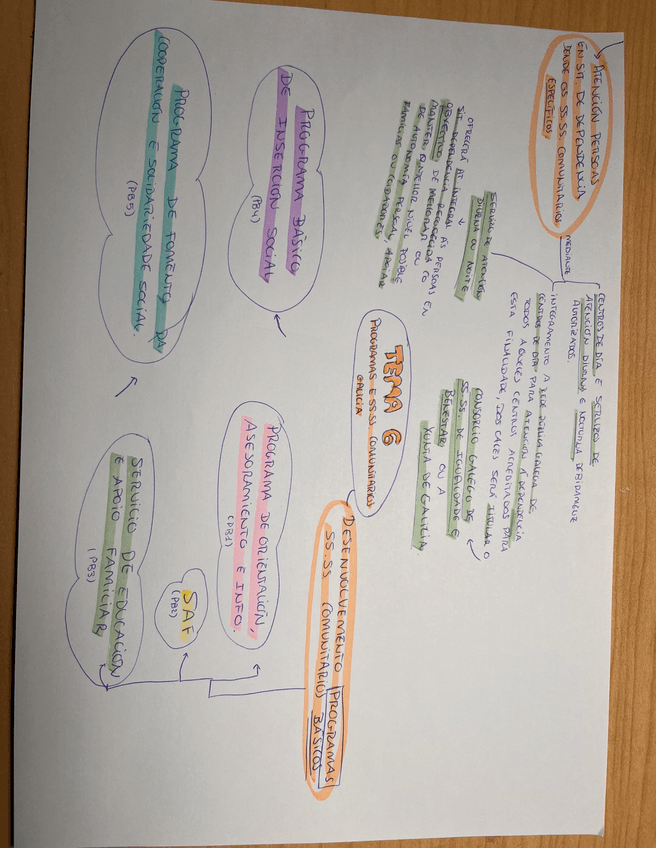 TEMA 6
PROGRAMAS E SS.SS COMUNITARIOS
GALICIA
ATENCIÓN PERSOAS
EN SIT. DE DEPENDENCIA
DENDE OS SS.SS. COMUNITARIOS
ESPECÍFICOS
MEDIANTE
CENTROS DE DÍA E SERVIZOS DE
ATENCIÓN DIURNA E NOCTURNA DEBIDAMENTE
AUTORIZADOS.
INTEGRAMENTO A REDE PÚBLICA GALEGA DE
CENTROS DE DÍA PARA ATENCIÓN Á DEPENDENCIA
TODOS AQUELES CENTROS ACREDITADOS PARA
ESTA FINALIDADE, DOS CALES SERÁ TITULAR O
CONSORCIO GALEGO DE
SS.SS. DE IGUALDADE E
BENESTAR OU A
XUNTA DE GALICIA.
SERVIZO DE ATENCIÓN
DIURNA OU NOITE
OFRECERÁ AT. INTEGRAL ÁS PERSOAS EN
SIT. DEPENDENCIA RECOÑECIDA CO
OBXECTIVO DE MELLORAR OU
MANTER O MELLOR NIVEL POSIBLE
DE AUTONOMÍA PERSOAL, APOIAR
FAMILIAS OU COIDADORES.
DESENVOLVEMENTO PROGRAMAS
SS.SS COMUNITARIOS BÁSICOS
PROGRAMA DE ORIENTACIÓN,
ASESORAMIENTO E INFO.
(PB1)
SAF
(PB2)
SERVICIO DE EDUCACIÓN
E APOIO FAMILIAR
(PB3)
PROGRAMA BÁSICO
DE INSERCIÓN SOCIAL
(PB4)
PROGRAMA DE FOMENTO DA
COOPERACIÓN E SOLIDARIEDADE SOCIAL.
(PB5)